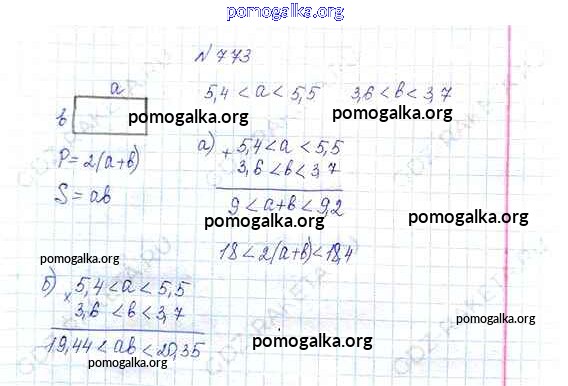 pomogalka.org
N 773
a
5,4 < a < 5,5    3,6 < в < 3,7
в
pomogalka.org    pomogalka.org
а) + 5,4 < a < 5,5
3,6 < в < 3,7
P = 2(a+в)
9 < a+в < 9,2
S = aв
pomogalka.org    pomogalka.org
18 < 2(a+в) < 18,4
pomogalka.org
б) × 5,4 < a < 5,5
3,6 < в < 3,7
pomogalka.org
19,44 < aв < 20,35
pomogalka.org
pomogalka.org
GDZ-RAKETA.RU